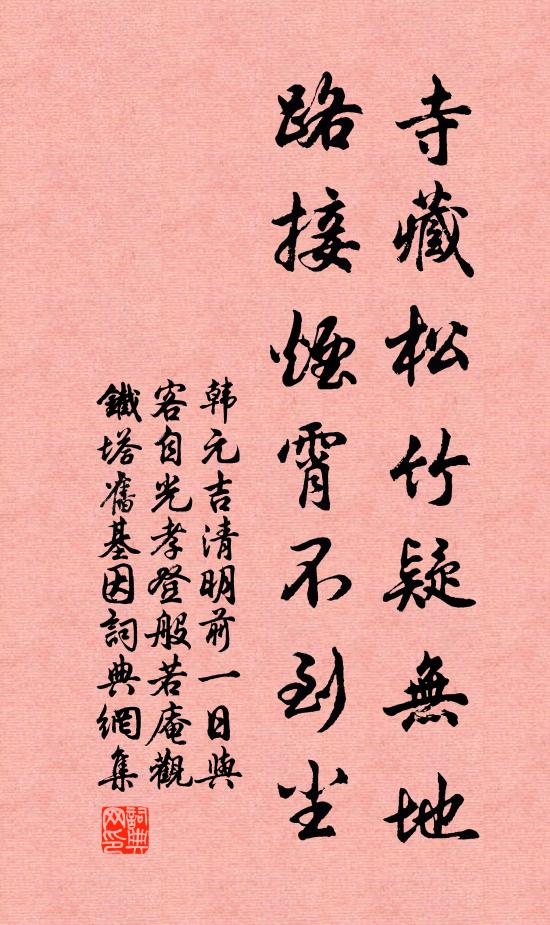 寺藏松竹疑無地
路接煙霄不到尘
韩元吉清明前一日與
客自光孝登般若庵觀
鐵塔舊基因詞典網集
詞典网印